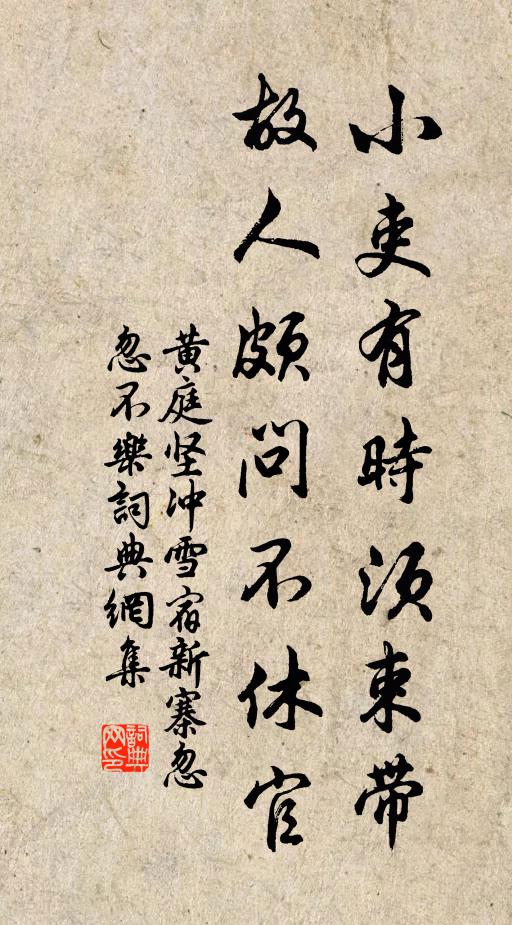 小吏有時須束帶
故人頗問不休官
黄庭坚冲雪宿新寨忽
忽不樂詞典網集
詞典网印